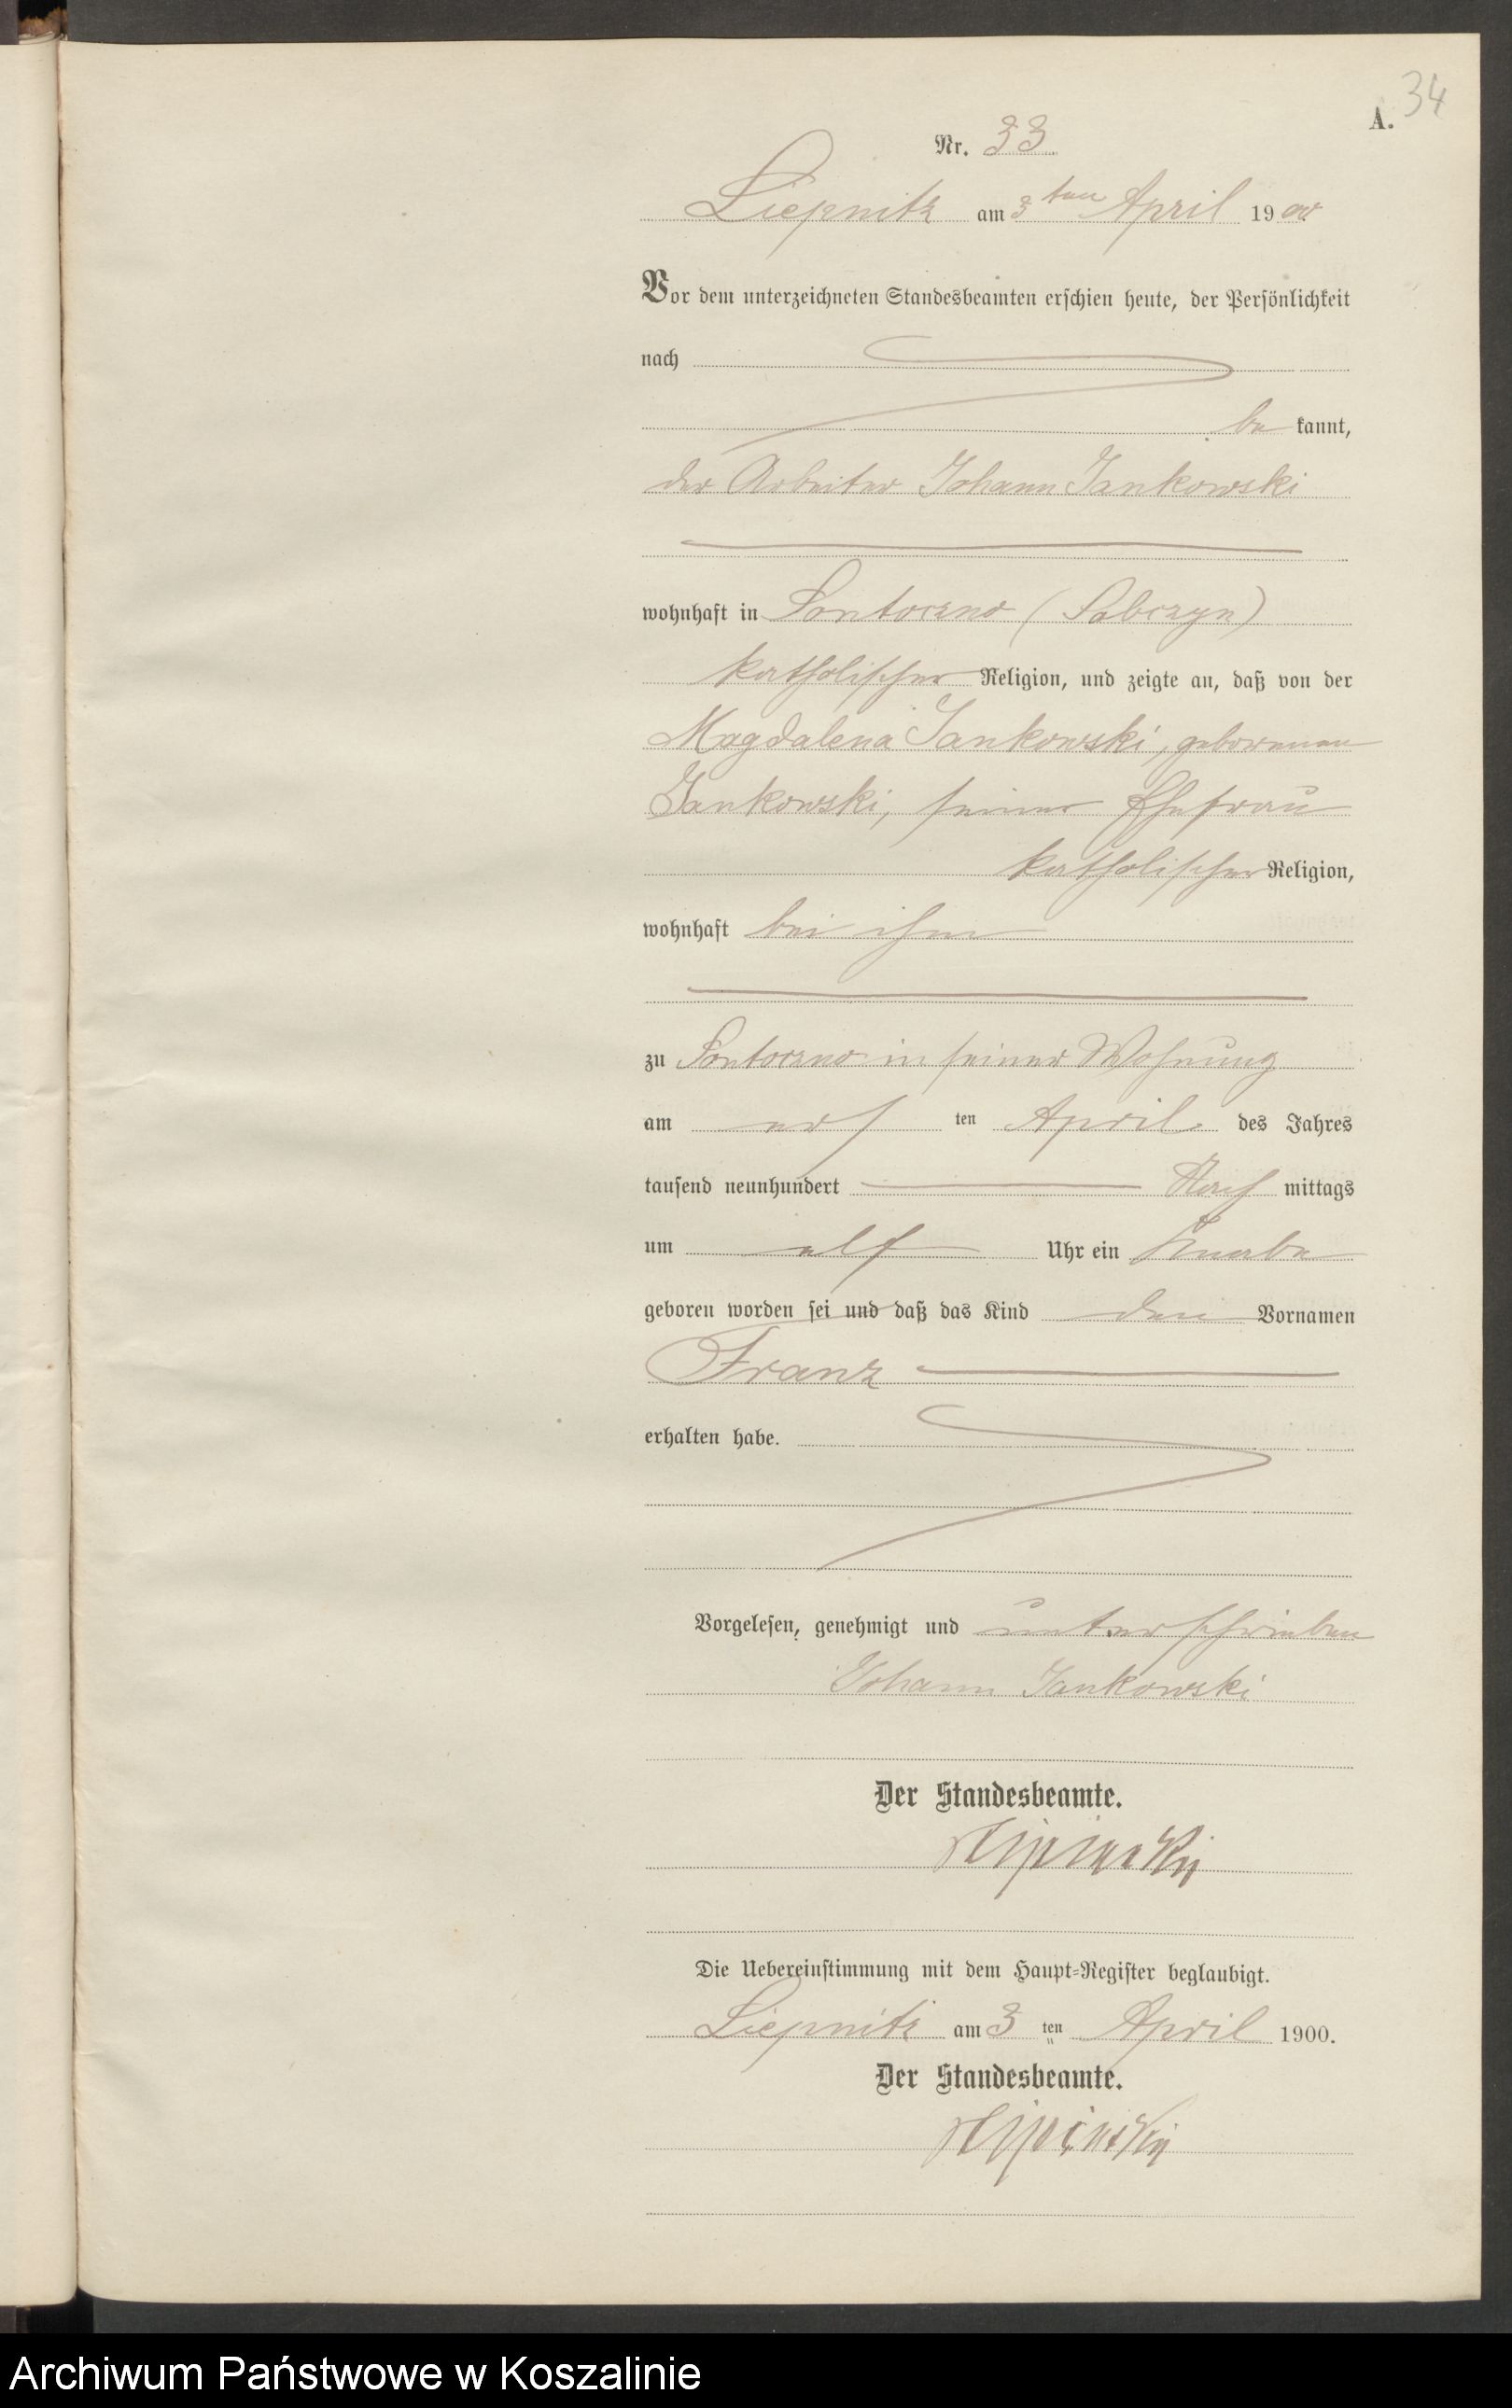 34
A.
Nr. 33
Liepnitz am 3ten April 1900
Vor dem unterzeichneten Standesbeamten erschien heute, der Persönlichkeit
nach
be kannt,
der Arbeiter Johann Jankowski
wohnhaft in Sontoczno (Sabczyn)
katholischer Religion, und zeigte an, daß von der
Magdalena Jankowski, geborenen
Jankowski, seiner Ehefrau
katholischer Religion,
wohnhaft bei ihm
zu Sontoczno in seiner Wohnung
am ers ten April des Jahres
tausend neunhundert Nach mittags
um elf Uhr ein Knabe
geboren worden sei und daß das Kind den Vornamen
Franz
erhalten habe.
Vorgelesen, genehmigt und unterschrieben
Johann Jankowski
Der Standesbeamte.
Die Uebereinstimmung mit dem Haupt-Register beglaubigt.
Liepnitz am 3 ten April 1900.
Der Standesbeamte.
Archiwum Państwowe w Koszalinie